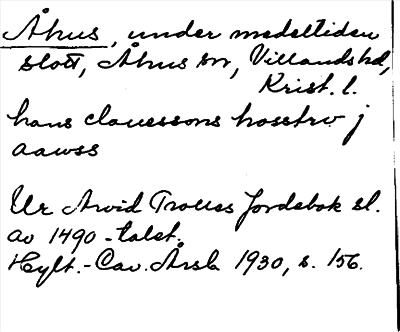 Åhus, under medeltiden
slott, Åhus sn, Villands hd,
Krist. l.
hans clauessons hosstrv j
aawss
Ur Arvid Trolles Jordebok sl.
av 1490-talet.
Hylt.-Cav. Årsb. 1930, s. 156.